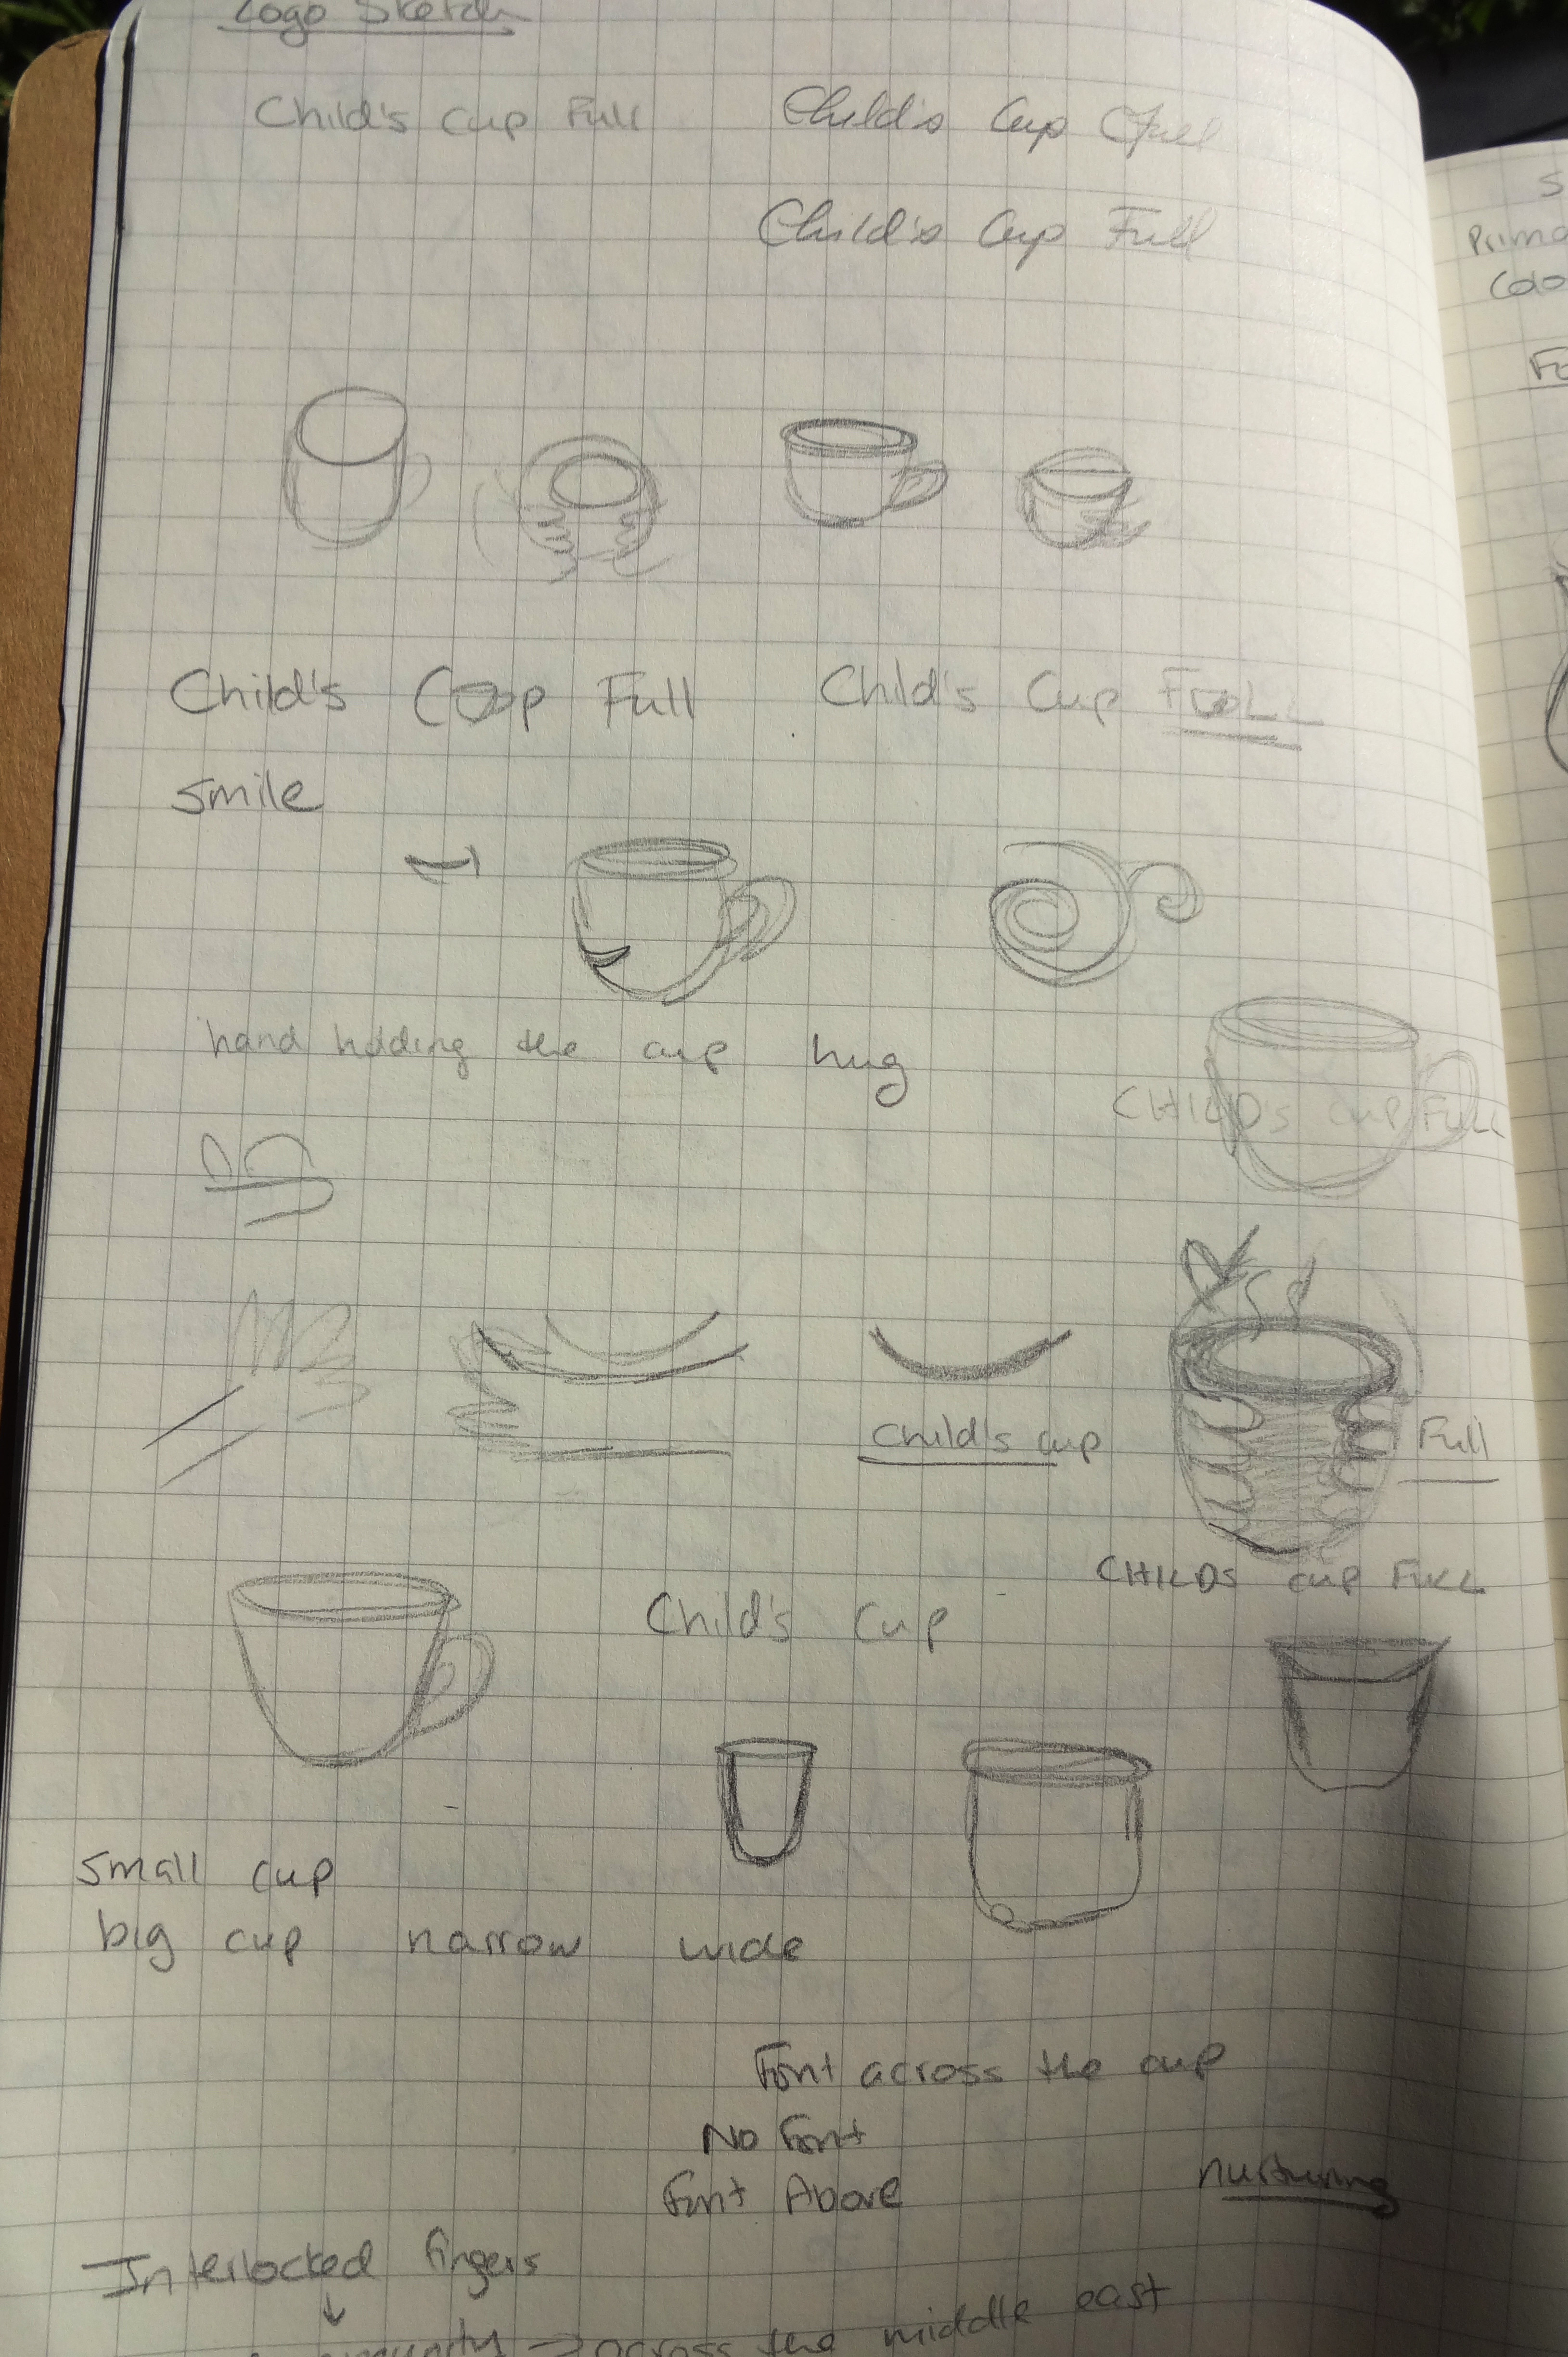 Logo Sketch
Child's Cup Full
Child's Cup Full
Child's Cup Full
Child's Cup Full
Child's Cup FULL
smile
hand holding the cup hug
CHILD's cup FULL
Child's cup
Full
CHILDS cup FULL
Child's Cup
small cup
big cup narrow wide
Font across the cup
No Font
Font Above
nurturing
Interlocked fingers
→ across the middle east